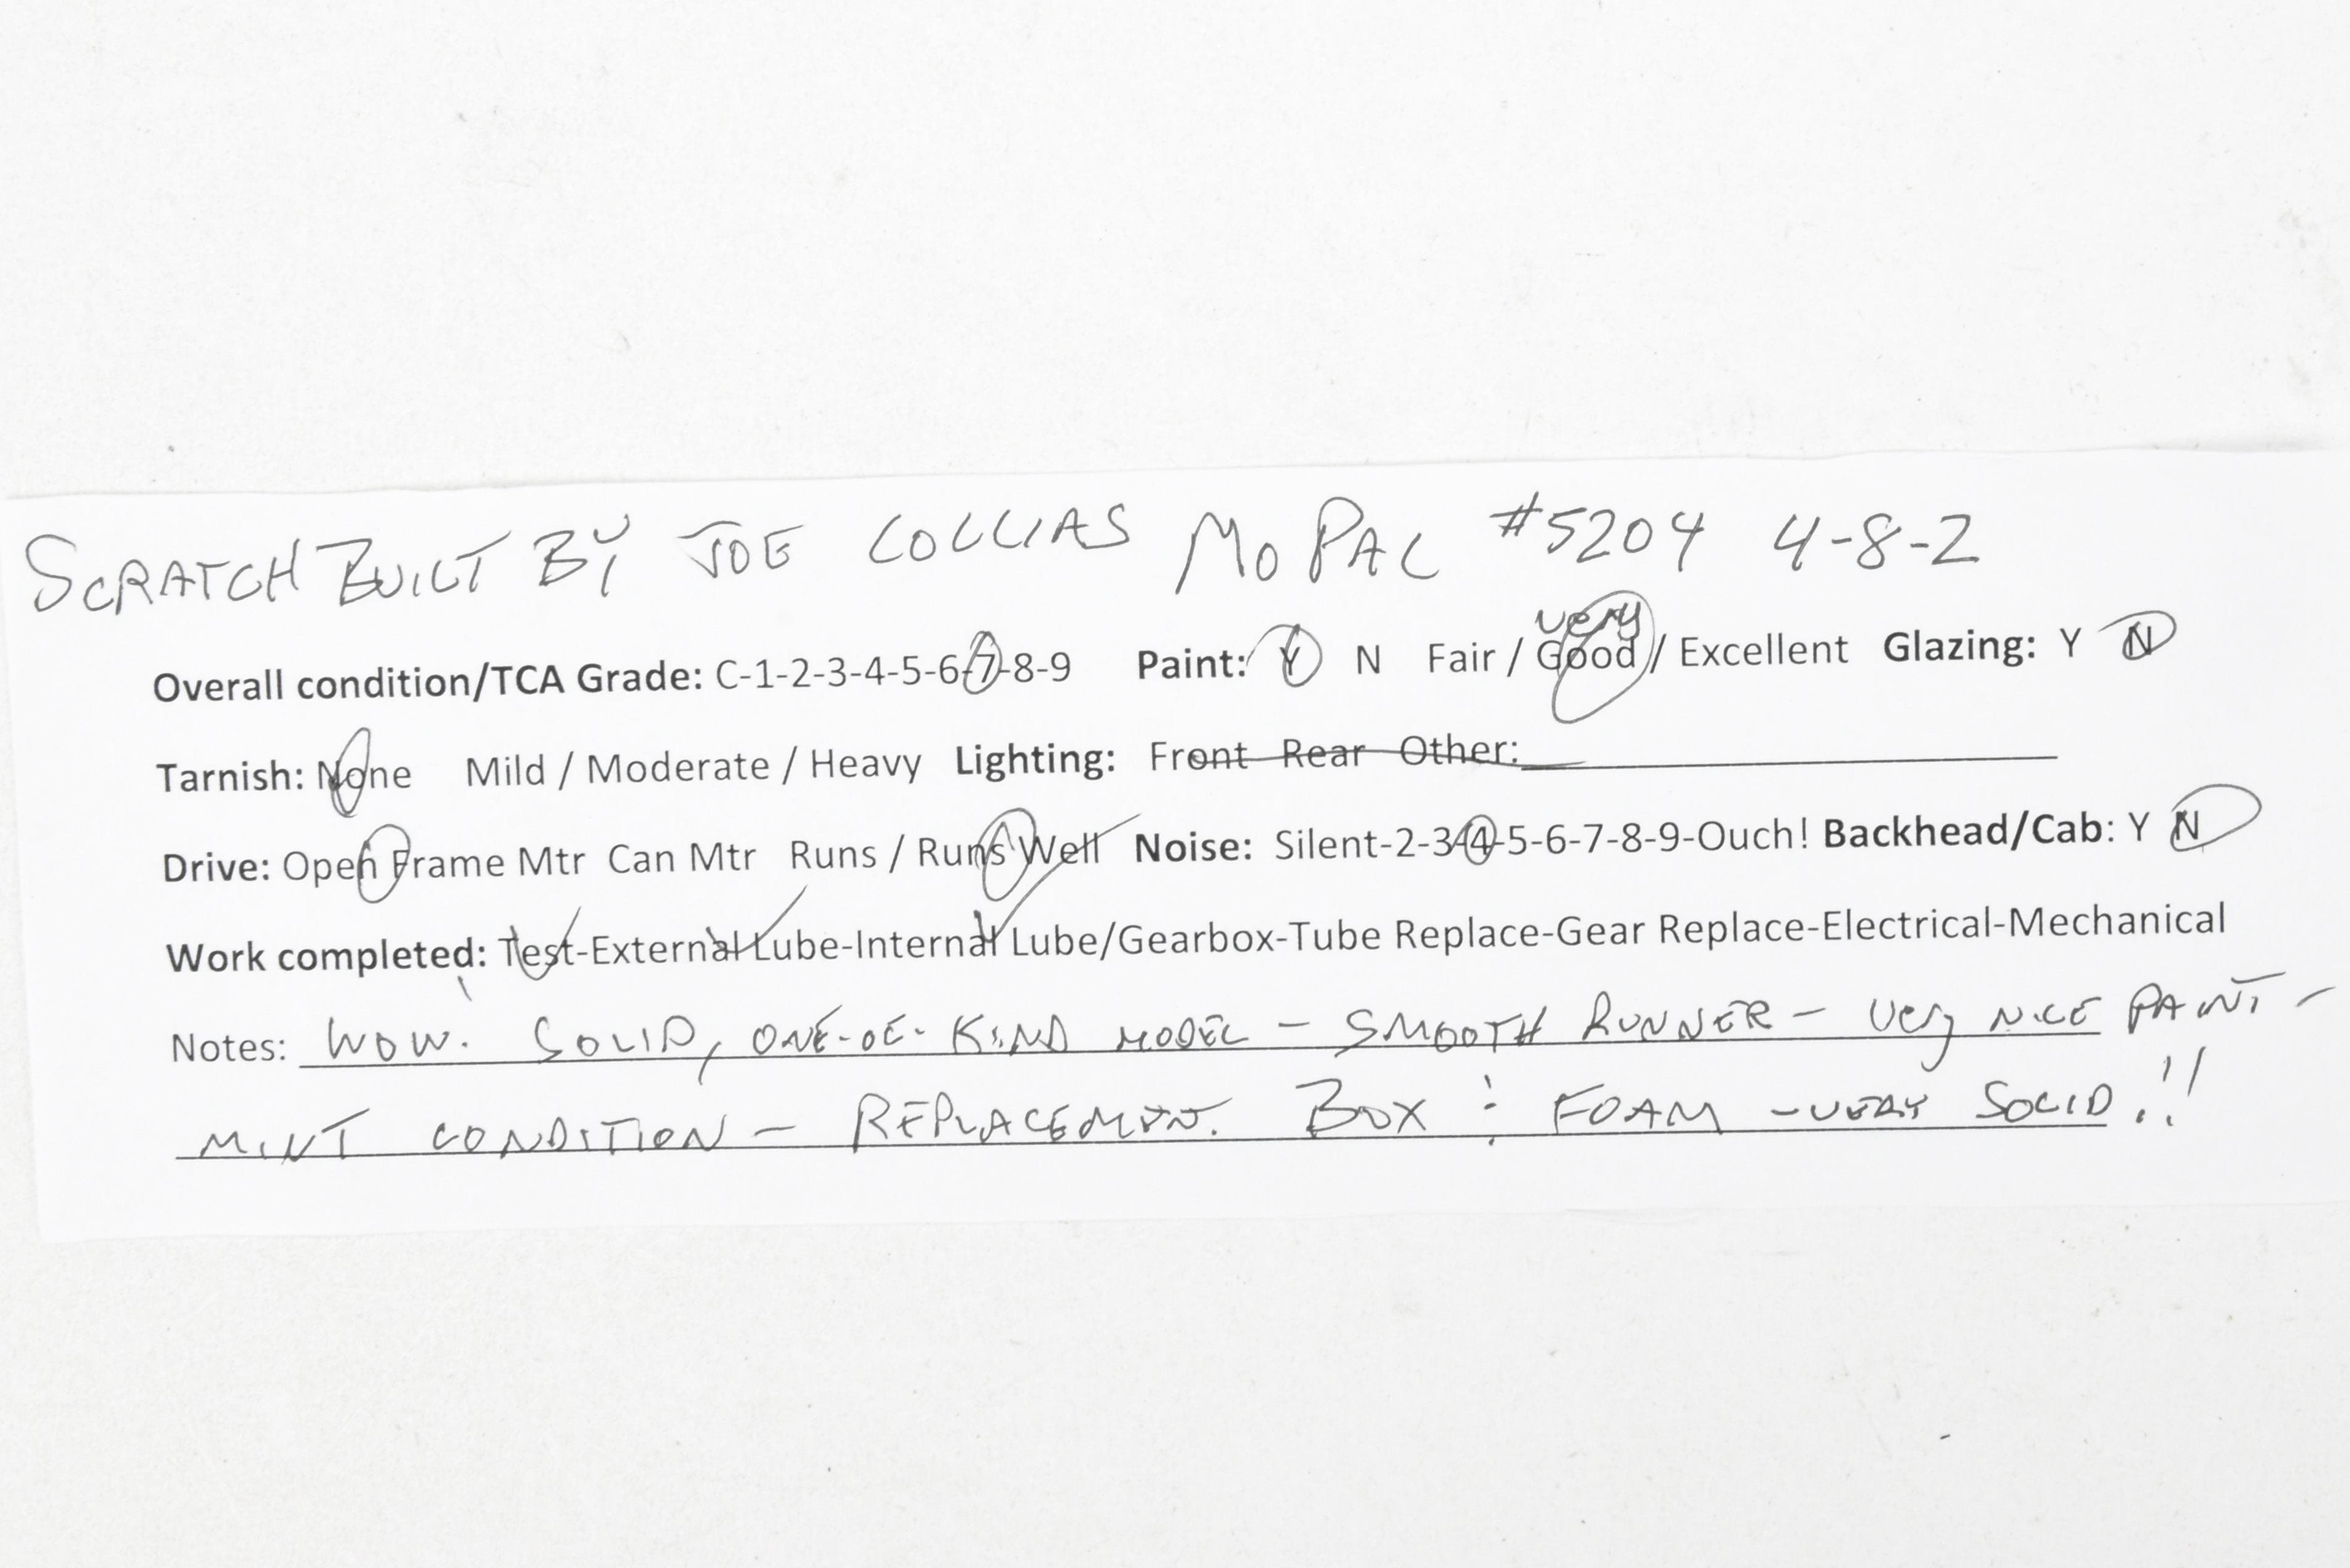 SCRATCH BUILT BY JOE COLLIAS MO PAC #5204 4-8-2
very
Overall condition/TCA Grade: C-1-2-3-4-5-6-7-8-9 Paint: Y N Fair / Good / Excellent Glazing: Y N
Tarnish: None Mild / Moderate / Heavy Lighting: Front Rear Other:
Drive: Open Frame Mtr Can Mtr Runs / Runs Well Noise: Silent-2-3-4-5-6-7-8-9-Ouch! Backhead/Cab: Y N
Work completed: Test-External Lube-Internal Lube/Gearbox-Tube Replace-Gear Replace-Electrical-Mechanical
Notes: WOW. SOLID, ONE-OF-KIND MODEL - SMOOTH RUNNER - Very NICE PAINT -
MINT CONDITION - REPLACEMENT. BOX & FOAM - VERY SOLID!!